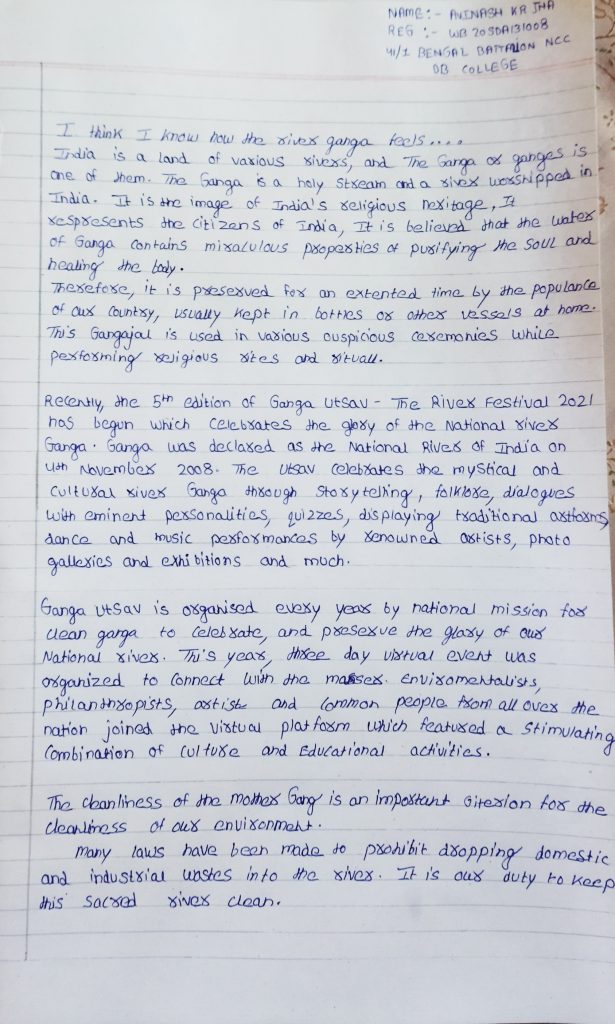 NAME :- AVINASH KR JHA
REG :- WB20SDA131008
41/1 BENGAL BATTALION NCC
DB COLLEGE
I think I know how the river ganga feels....
India is a land of various rivers, and The Ganga or ganges is
one of them. The Ganga is a holy stream and a river worshipped in
India. It is the image of India's religious heritage, It
respresents the citizens of India, It is believed that the water
of Ganga contains miralulous properties of purifying the soul and
healing the body.
Therefore, it is preserved for an extented time by the populance
of our country, usually kept in bottles or other vessels at home.
This Gangajal is used in various auspicious ceremonies while
performing religious rites and rituall.
Recently, the 5th edition of Ganga Utsav - The River Festival 2021
has begun which celebrates the glory of the National river
Ganga. Ganga was declared as the National River of India on
4th November 2008. The utsav celebrates the mystical and
cultural river Ganga through storytelling, folklore, dialogues
with eminent personalities, quizzes, displaying traditional artforms,
dance and music performances by renowned artists, photo
galleries and exhibitions and much.
Ganga Utsav is organised every year by national mission for
clean ganga to celebrate, and preserve the glory of our
National river. This year, three day virtual event was
organized to connect with the masses. enviromentalists,
philanthropists, artist and common people from all over the
nation joined the virtual platform which featured a stimulating
combination of culture and educational activities.
The cleanliness of the mother Gang is an important citerion for the
cleanliness of our environment.
Many laws have been made to prohibit dropping domestic
and industrial wastes into the river. It is our duty to keep
this sacred river clean.